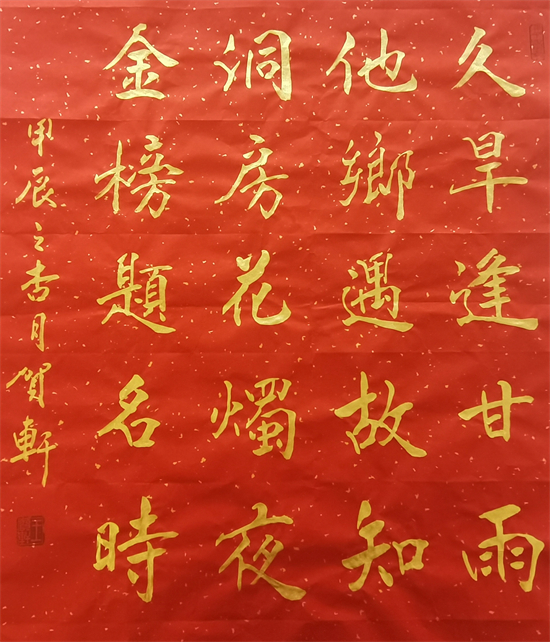 久旱逢甘雨
他鄉遇故知
洞房花燭夜
金榜題名時
甲辰之杏月賀軒